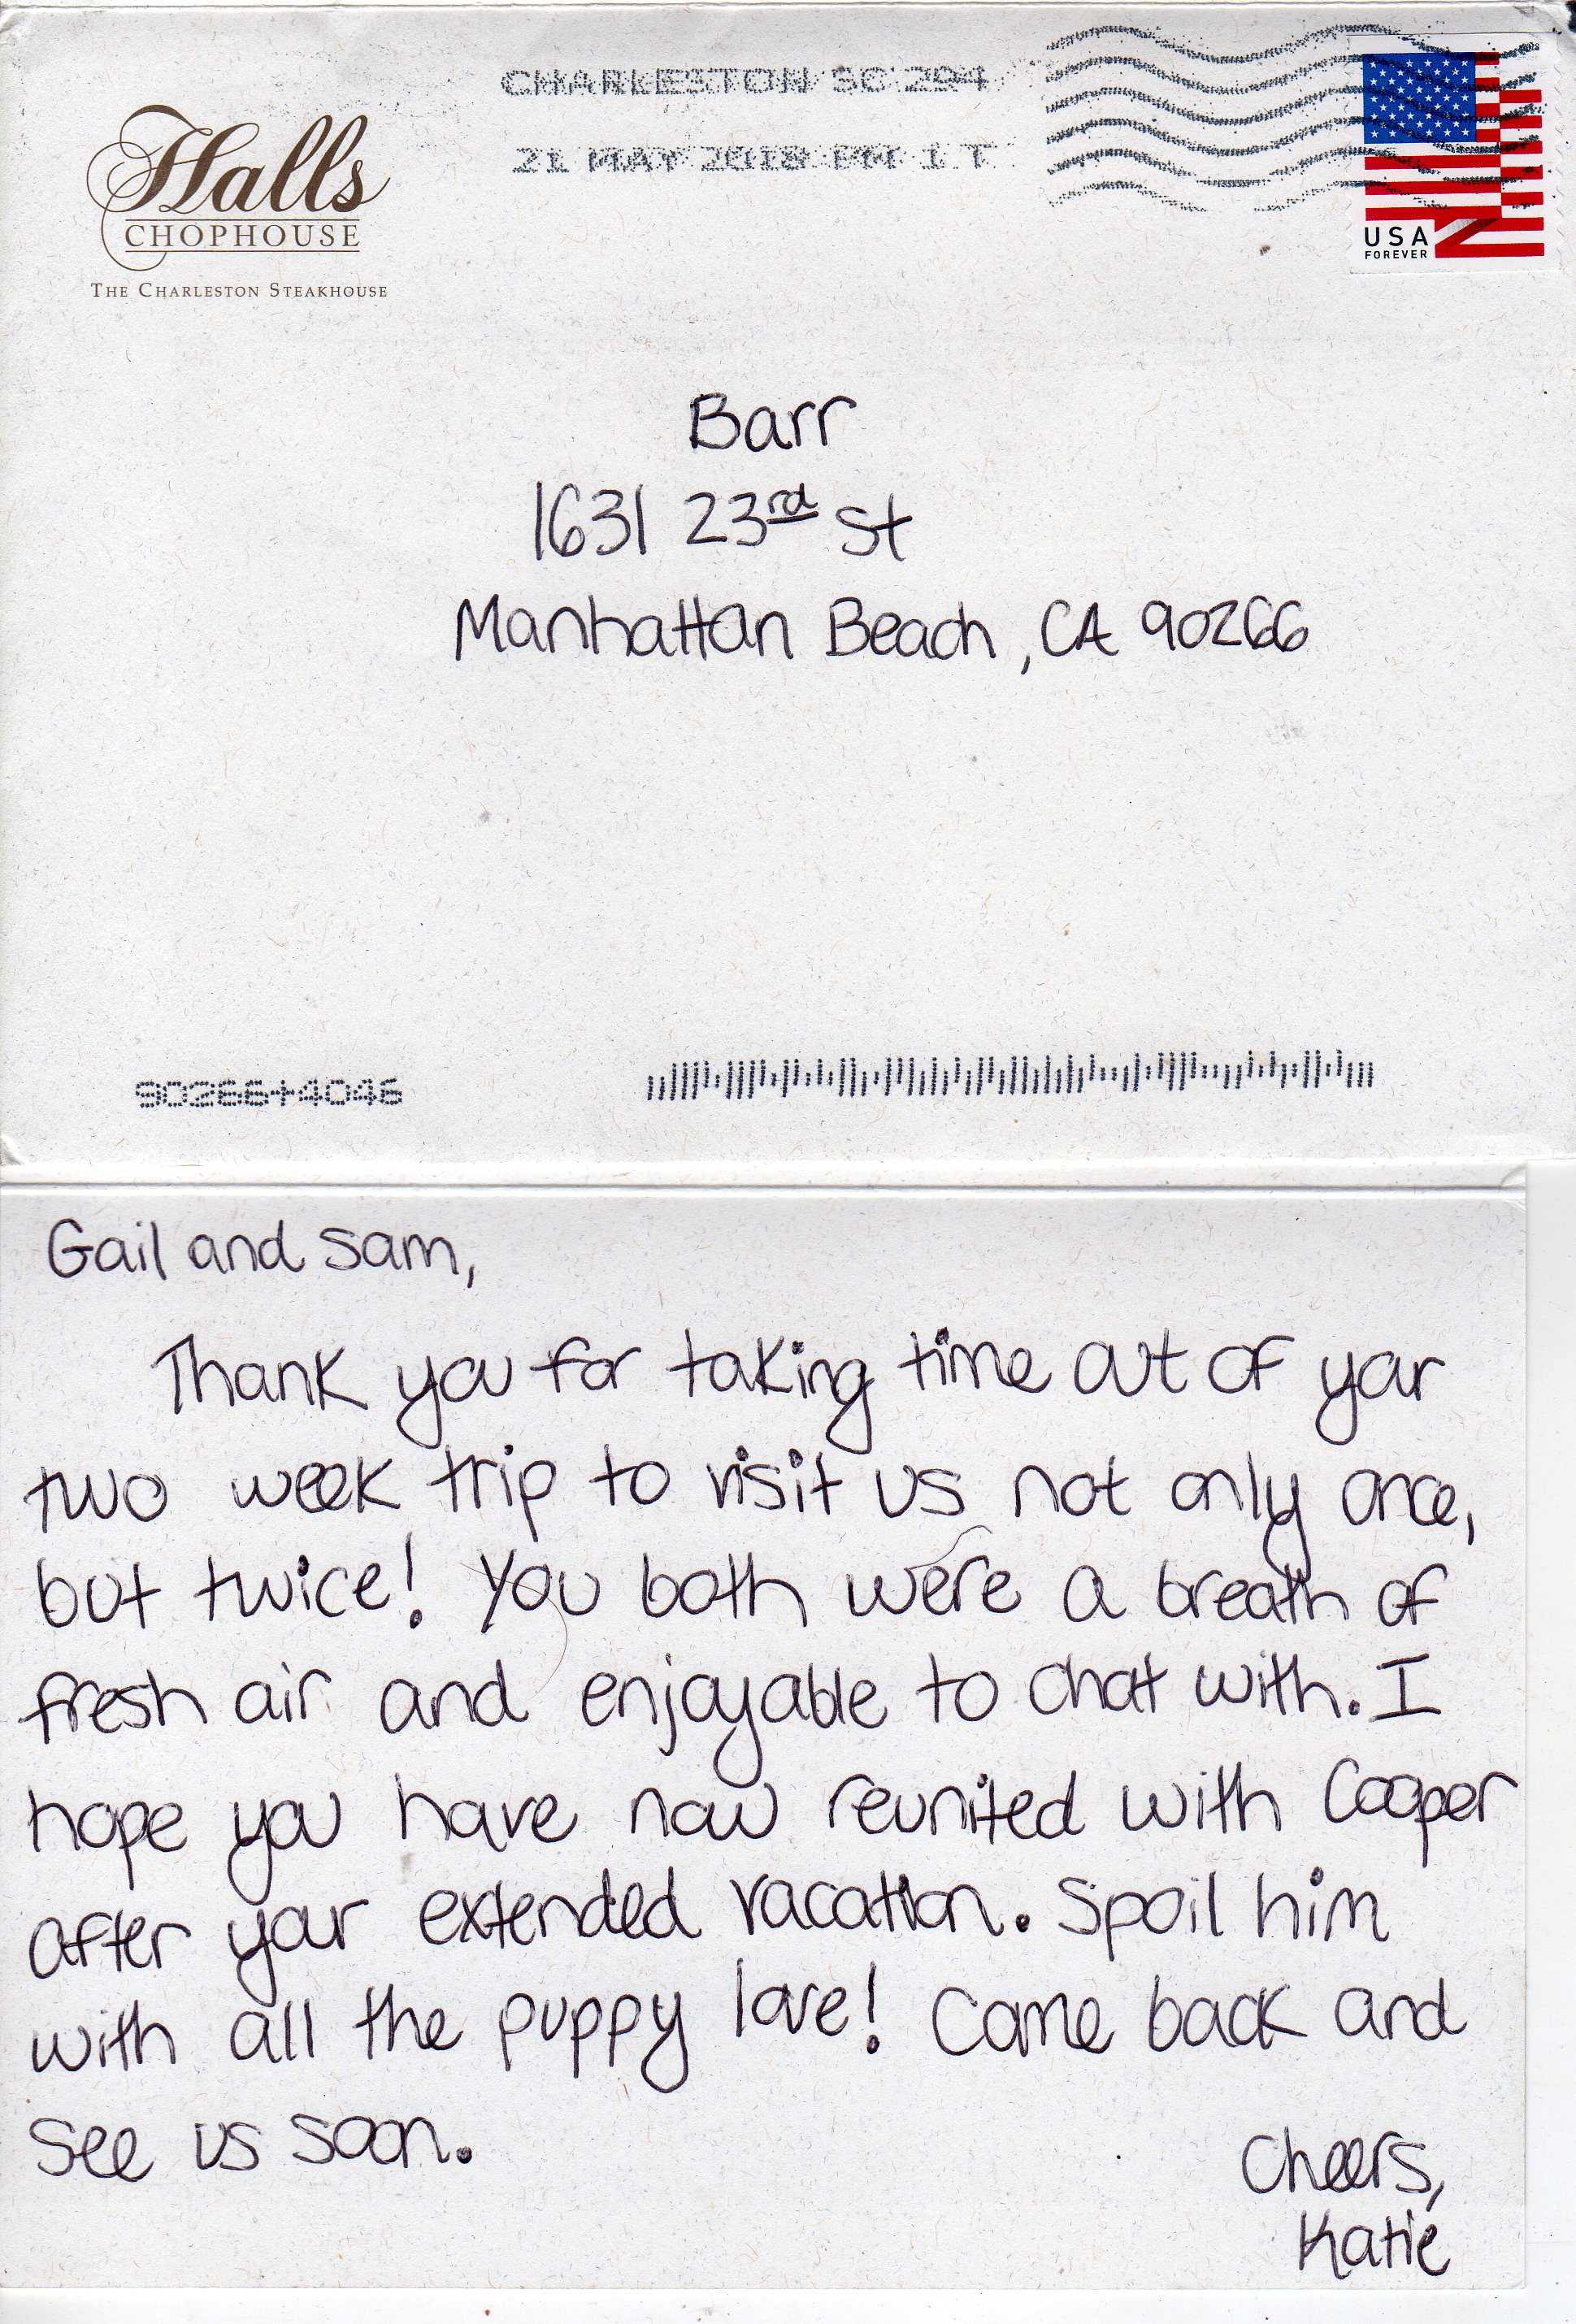 Halls
CHOPHOUSE
THE CHARLESTON STEAKHOUSE
CHARLESTON SC 294
21 MAY 2018 PM 1 T
USA
FOREVER
Barr
1631 23rd St
Manhattan Beach, CA 90266
90266+4046
Gail and Sam,
Thank you for taking time out of your
two week trip to visit us not only once,
but twice! You both were a breath of
fresh air and enjoyable to chat with. I
hope you have now reunited with Cooper
after your extended vacation. Spoil him
with all the puppy love! Come back and
see us soon.
Cheers,
Katie